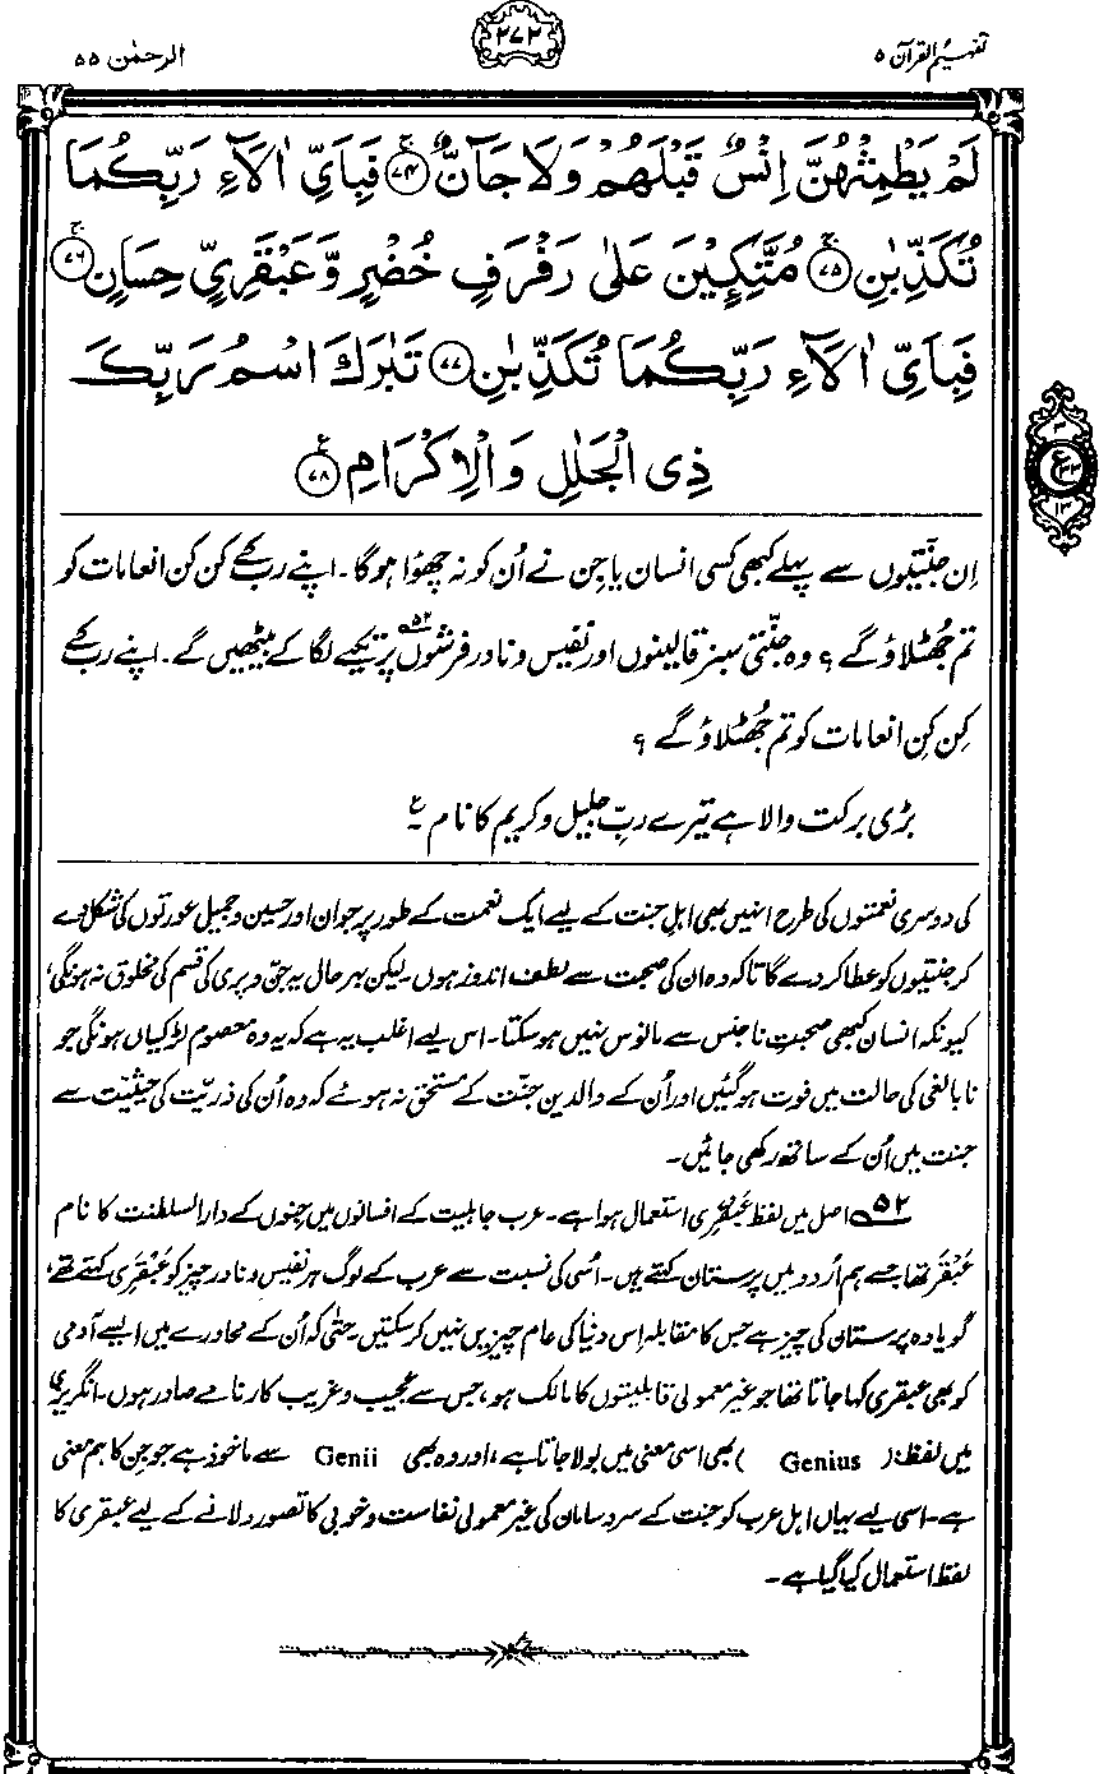 تفہیم القرآن ۵
۲۷۲
الرحمٰن ۵۵
لَمْ يَطْمِثْهُنَّ اِنْسٌ قَبْلَهُمْ وَلَا جَآنٌّ ۚ﴿۷۴﴾ فَبِاَيِّ اٰلَآءِ رَبِّكُمَا
تُكَذِّبٰنِ ۚ﴿۷۵﴾ مُتَّكِـِٕيْنَ عَلٰى رَفْرَفٍ خُضْرٍ وَّعَبْقَرِيٍّ حِسَانٍ ۚ﴿۷۶﴾
فَبِاَيِّ اٰلَآءِ رَبِّكُمَا تُكَذِّبٰنِ ﴿۷۷﴾ تَبٰرَكَ اسْمُ رَبِّكَ
ذِي الْجَلٰلِ وَالْاِكْرَامِ ﴿۷۸﴾ ع
۳
ع ۳۳
۱۳
اِن جنّتیوں سے پہلے کبھی کسی انسان یا جِن نے اُن کو نہ چھُوا ہوگا۔ اپنے رب کے کن کن انعامات کو
تم جھُٹلاؤ گے ؟ وہ جنّتی سبز قالینوں اور نفیس و نادر فرشوں ۵۲ پر تکیے لگا کے بیٹھیں گے۔ اپنے رب کے
کِن کِن انعامات کو تم جھُٹلاؤ گے ؟
بڑی برکت والا ہے تیرے ربِّ جلیل و کریم کا نام ۔ ع
کی دوسری نعمتوں کی طرح انہیں بھی اہلِ جنت کے لیے ایک نعمت کے طور پر جوان اور حسین و جمیل عورتوں کی شکل دے
کر جنتیوں کو عطا کر دے گا تاکہ وہ ان کی صحبت سے لطف اندوز ہوں۔ لیکن بہر حال یہ جِنّ و پری کی قسم کی مخلوق نہ ہونگی،
کیونکہ انسان کبھی صحبتِ ناجنس سے مانوس نہیں ہو سکتا۔ اس لیے اغلب یہ ہے کہ یہ وہ معصوم لڑکیاں ہونگی جو
نابالغی کی حالت میں فوت ہوگئیں اور اُن کے والدین جنّت کے مستحق نہ ہوئے کہ وہ اُن کی ذریّت کی حیثیّت سے
جنت میں اُن کے ساتھ رکھی جائیں۔
۵۲ اصل میں لفظ عَبْقَرِی استعمال ہوا ہے۔ عرب جاہلیت کے افسانوں میں جِنوں کے دارالسلطنت کا نام
عَبْقَر تھا جسے ہم اُردو میں پرستان کہتے ہیں۔ اُسی کی نسبت سے عرب کے لوگ ہر نفیس و نادر چیز کو عَبْقَرِی کہتے تھے،
گویا وہ پرستان کی چیز ہے جس کا مقابلہ اِس دنیا کی عام چیزیں نہیں کر سکتیں۔ حتّٰی کہ اُن کے محاورے میں ایسے آدمی
کو بھی عبقری کہا جاتا تھا جو غیر معمولی قابلیتوں کا مالک ہو، جس سے عجیب و غریب کارنامے صادر ہوں۔ انگریزی
میں لفظ ( Genius ) بھی اسی معنی میں بولا جاتا ہے، اور وہ بھی Genii سے ماخوذ ہے جو جِن کا ہم معنی
ہے۔ اسی لیے یہاں اہلِ عرب کو جنت کے سرو سامان کی غیر معمولی نفاست و خوبی کا تصور دلانے کے لیے عبقری کا
لفظ استعمال کیا گیا ہے۔